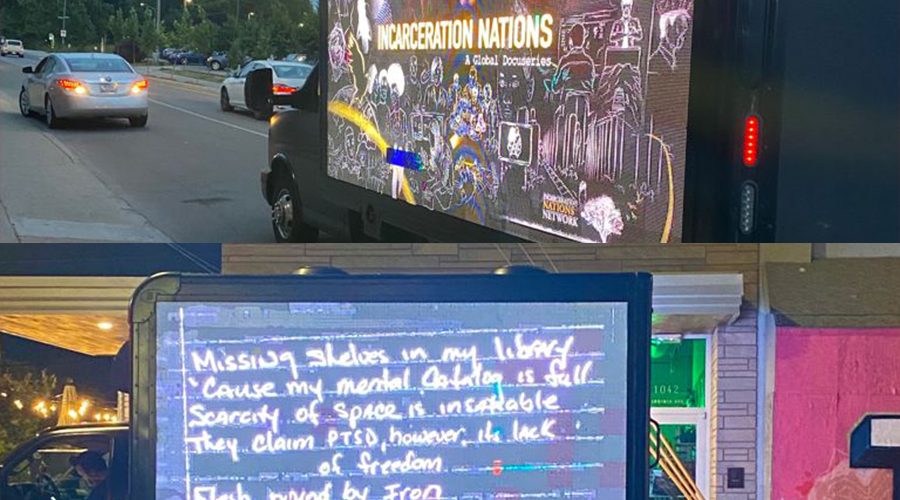 INCARCERATION NATIONS
A Global Docuseries
INCARCERATION
NATIONS
NETWORK
Missing shelves in my library
'Cause my mental Catalog is full
Scarcity of space is insatiable
They claim PTSD, however, its lack
of freedom
Flesh round by Iron
1042